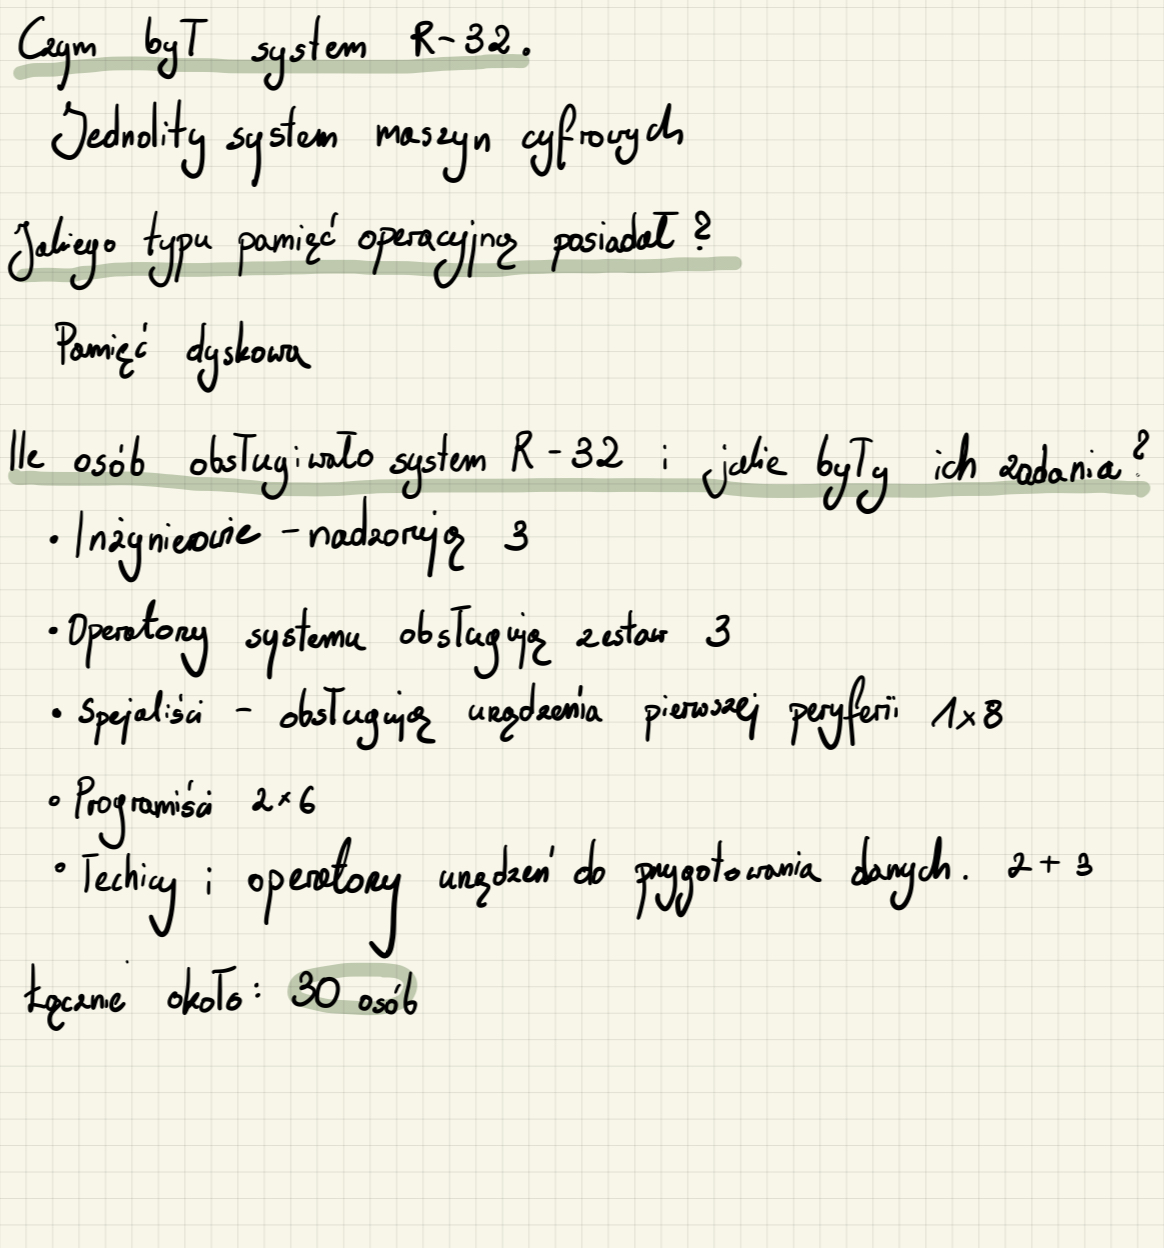 Czym był system R-32.
Jednolity system maszyn cyfrowych
Jakiego typu pamięć operacyjną posiadał?
Pamięć dyskowa
Ile osób obsługiwało system R-32 i jakie były ich zadania?
• Inżynierowie - nadzorują 3
• Operatory systemu obsługują zestaw 3
• Spejaliści - obsługują urządzenia pierwszej peryferii 1x8
• Programiści 2x6
• Techicy i operatory urządzeń do przygotowania danych. 2+3
Łącznie około: 30 osób